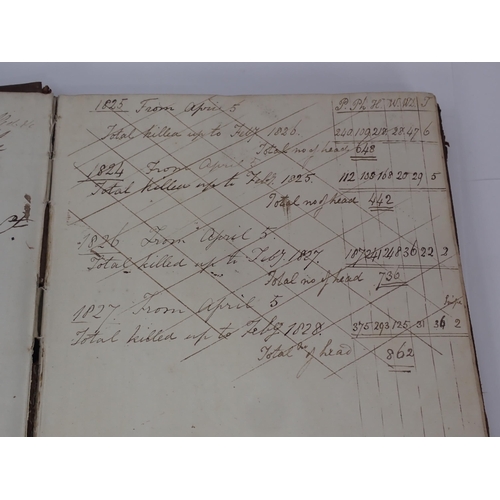 1825 From April 5 P. Ph. H. W. T
Total killed up to Feby 1826. 240 109 218 28 47 6
Total no of head 648
1824 From April 5
Total killed up to Feby 1825. 112 108 168 20 29 5
Total no of head 442
1826 From April 5
Total killed up to Feby 1827. 187 241 248 36 22 2
Total no of head 736
1827 From April 5
Total killed up to Feby 1828. 375 293 125 31 36 2
Total no of head 862